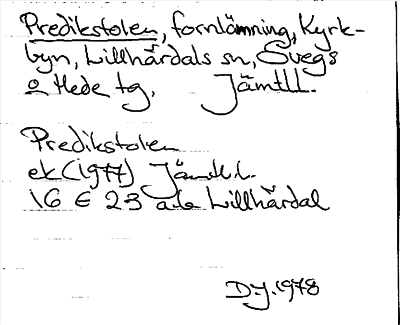 Predikstolen, fornlämning, Kyrk-
byn, Lillhärdals sn, Svegs
o Hede tg. Jämtl.l.
Predikstolen
ek (1977) Jämtl.l.
16 E 23 a Lillhärdal
D.J. 1978